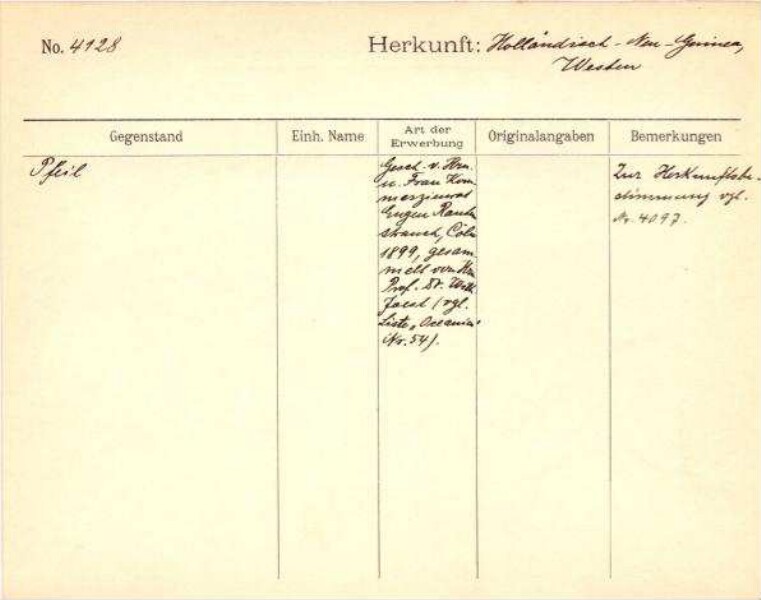 No. 4128
Herkunft: Holländisch-Neu-Guinea,
Westen
Gegenstand
Einh. Name
Art der
Erwerbung
Originalangaben
Bemerkungen
Pfeil
Gesch. v. Hrn.
u. Frau Kom-
merzienrat
Eugen Rauten-
strauch, Cöln
1899, gesam-
melt von Hrn.
Prof. Dr. Wilh.
Joest (vgl.
Liste "Oceanien"
Nr. 54).
Zur Herkunftsbe-
stimmung vgl.
Nr. 4097.